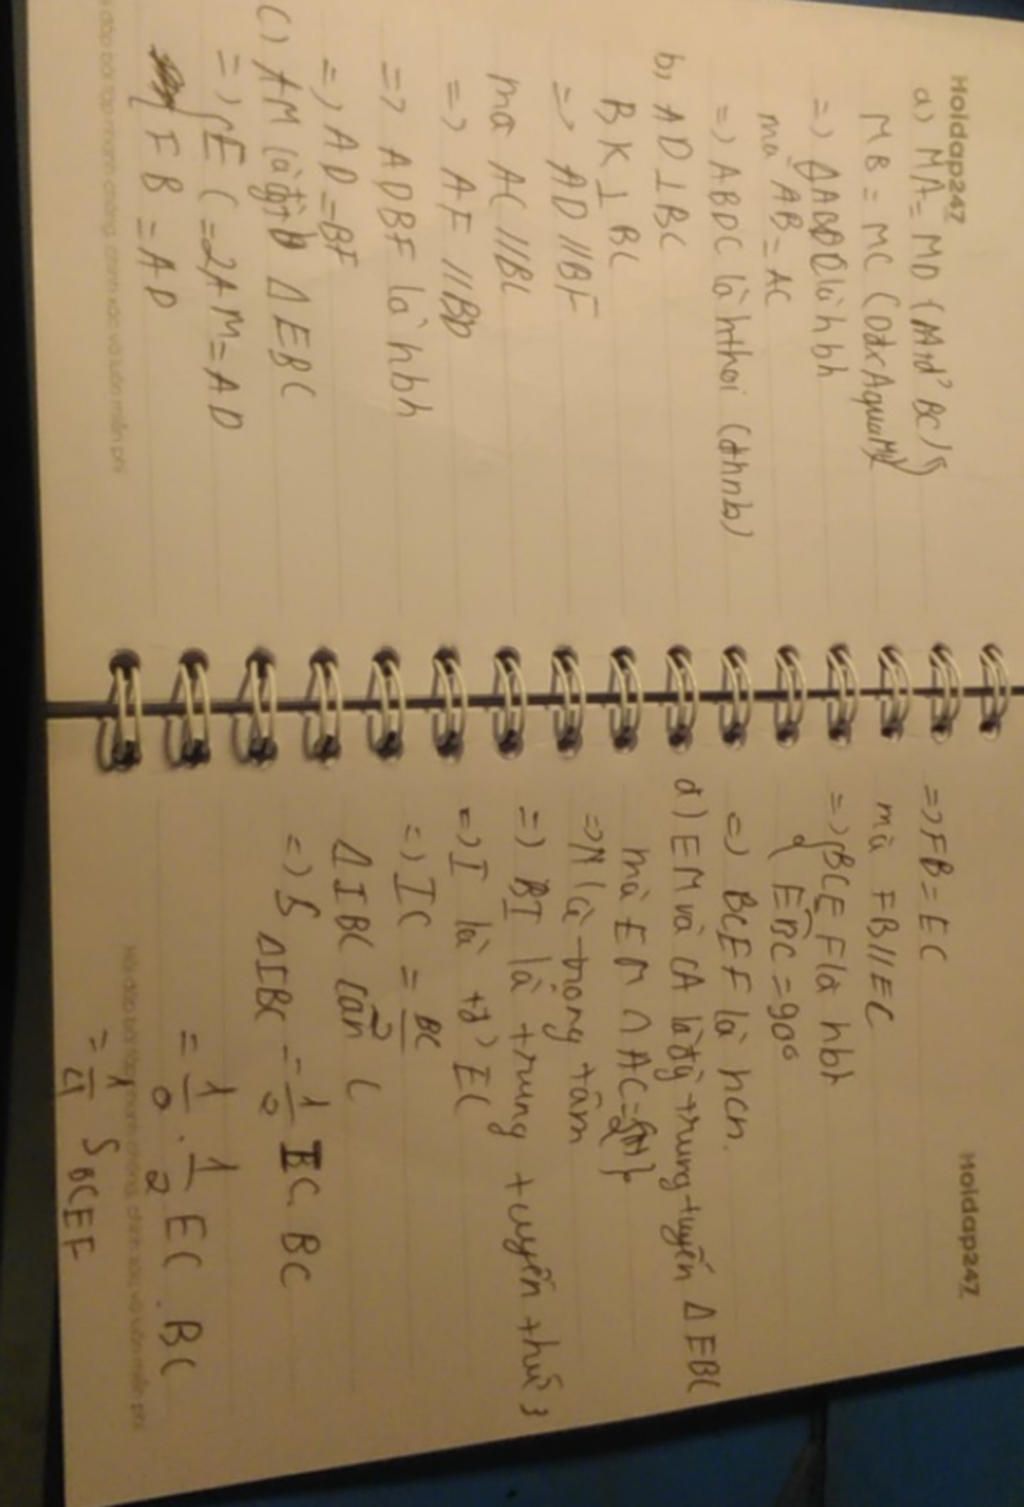 Hoidap247
a) MA = MD (M trđ² BC)
MB = MC (D đx A qua M)
=> ABDC là hbh
mà AB = AC
=> ABDC là hthoi (dhnb)
b, AD ⊥ BC
BK ⊥ BC
=> AD // BF
mà AC // BC
=> AF // BD
=> ADBF là hbh
=> AD = BF
c) AM là đtb Δ EBC
=> { EC = 2AM = AD
FB = AD
Hoidap247
=> FB = EC
mà FB // EC
=> { BCEF là hbh
EBC = 90°
=> BCEF là hcn.
d) EM và CA là đg trung tuyến Δ EBC
mà EM ∩ AC =
=> N là trọng tâm
=> BI là trung tuyến thứ 3
=> I là tđ² EC
=> IC = BC
Δ IBC cân C
=> S Δ IBC = 1/2 IC. BC
= 1/2 . 1/2 EC . BC
= 1/4 S BCEF